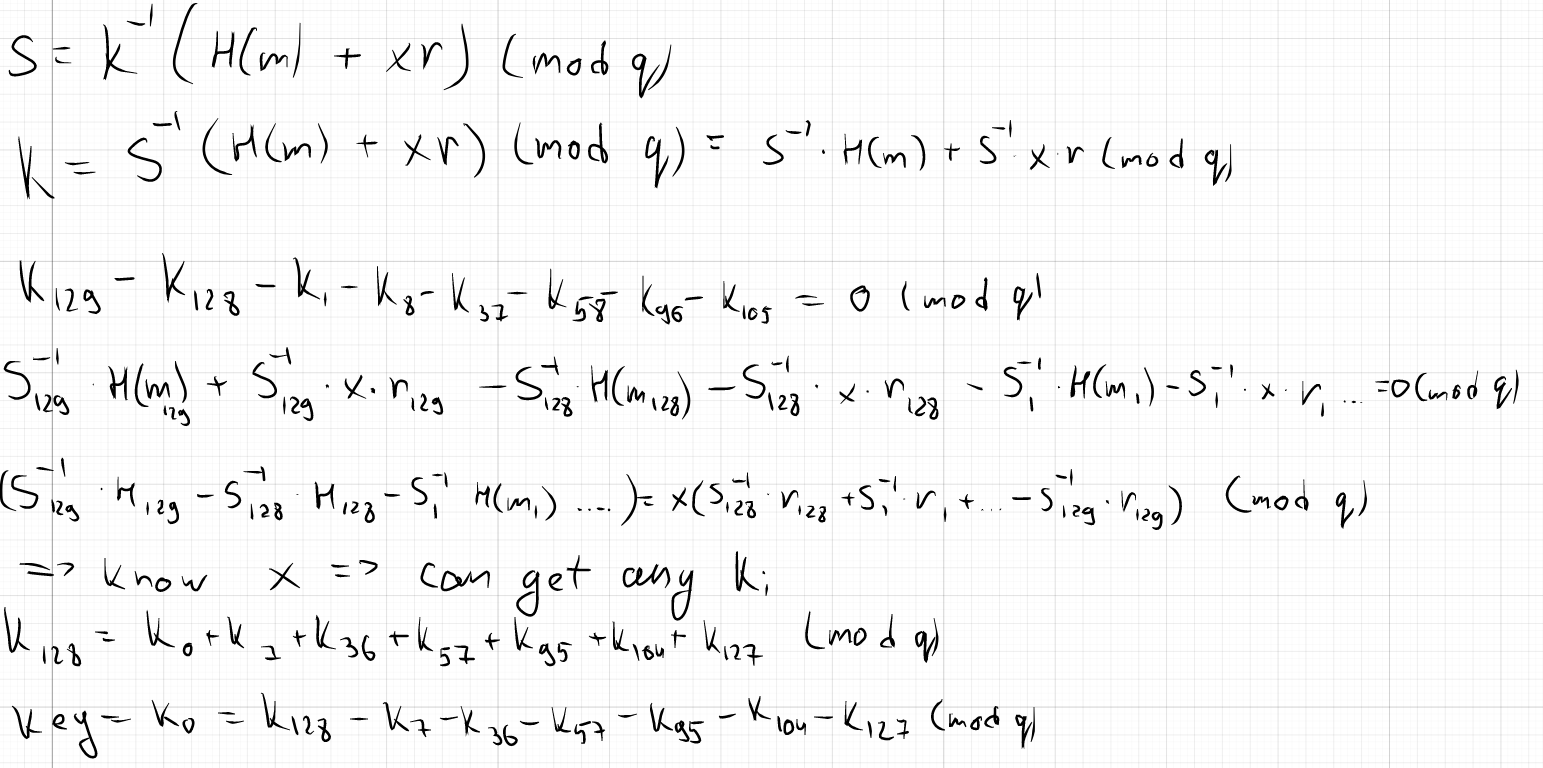 S = k⁻¹ (H(m) + xr) (mod q)
K = S⁻¹ (H(m) + xr) (mod q) = S⁻¹ · H(m) + S⁻¹ · x · r (mod q)
K₁₂₉ - K₁₂₈ - K₁ - K₈ - K₃₇ - K₅₈ - K₉₆ - K₁₀₅ = 0 (mod q)
S₁₂₉⁻¹ · H(m)₁₂₉ + S₁₂₉⁻¹ · x · r₁₂₉ - S₁₂₈⁻¹ · H(m₁₂₈) - S₁₂₈⁻¹ · x · r₁₂₈ - S₁⁻¹ · H(m₁) - S₁⁻¹ · x · r₁ ... = 0 (mod q)
(S₁₂₉⁻¹ · H₁₂₉ - S₁₂₈⁻¹ · H₁₂₈ - S₁⁻¹ H(m₁) ....) = x(S₁₂₈⁻¹ · r₁₂₈ + S₁⁻¹ · r₁ + ... - S₁₂₉⁻¹ · r₁₂₉) (mod q)
=> know x => can get any Kᵢ
K₁₂₈ = K₀ + K₇ + K₃₆ + K₅₇ + K₉₅ + K₁₀₄ + K₁₂₇ (mod q)
Key = K₀ = K₁₂₈ - K₇ - K₃₆ - K₅₇ - K₉₅ - K₁₀₄ - K₁₂₇ (mod q)